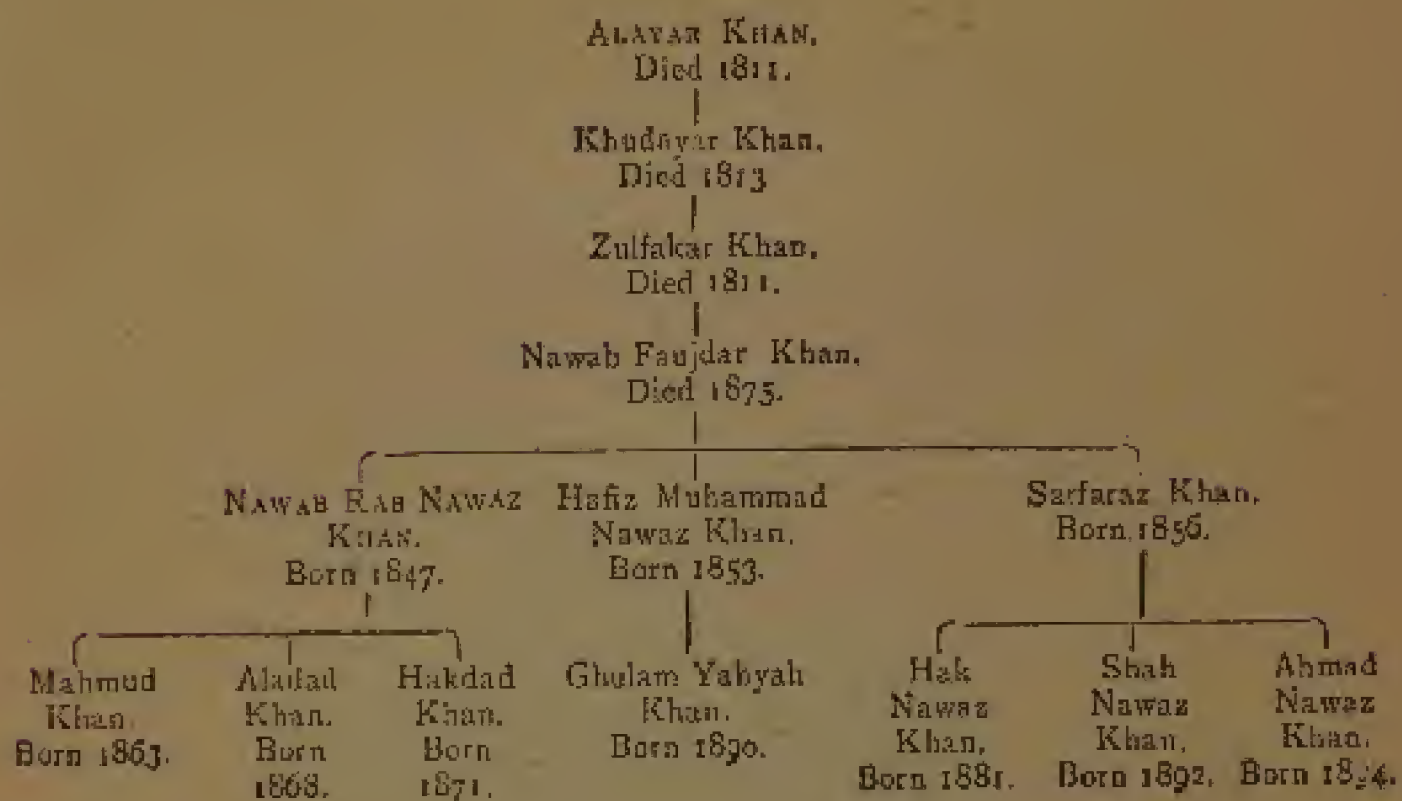 ALAYAR KHAN.
Died 1811.
Khudayar Khan.
Died 1813
Zulfakar Khan.
Died 1811.
Nawab Faujdar Khan.
Died 1875.
NAWAB RAB NAWAZ
KHAN.
Born 1847.
Hafiz Muhammad
Nawaz Khan.
Born 1853.
Sarfaraz Khan.
Born 1856.
Mahmud
Khan.
Born 1863.
Aladad
Khan.
Born
1868.
Hakdad
Khan.
Born
1871.
Ghulam Yahyah
Khan.
Born 1890.
Hak
Nawaz
Khan,
Born 1881.
Shah
Nawaz
Khan.
Born 1892.
Ahmad
Nawaz
Khan.
Born